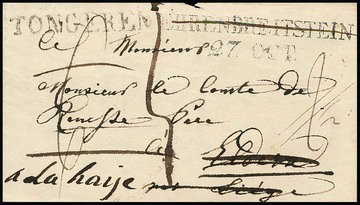 TONGEREN EHRENBREITSTEIN
a Monsieur 27 OCT
Monsieur le Comte de
Renesse Père
à
a La haije Liége